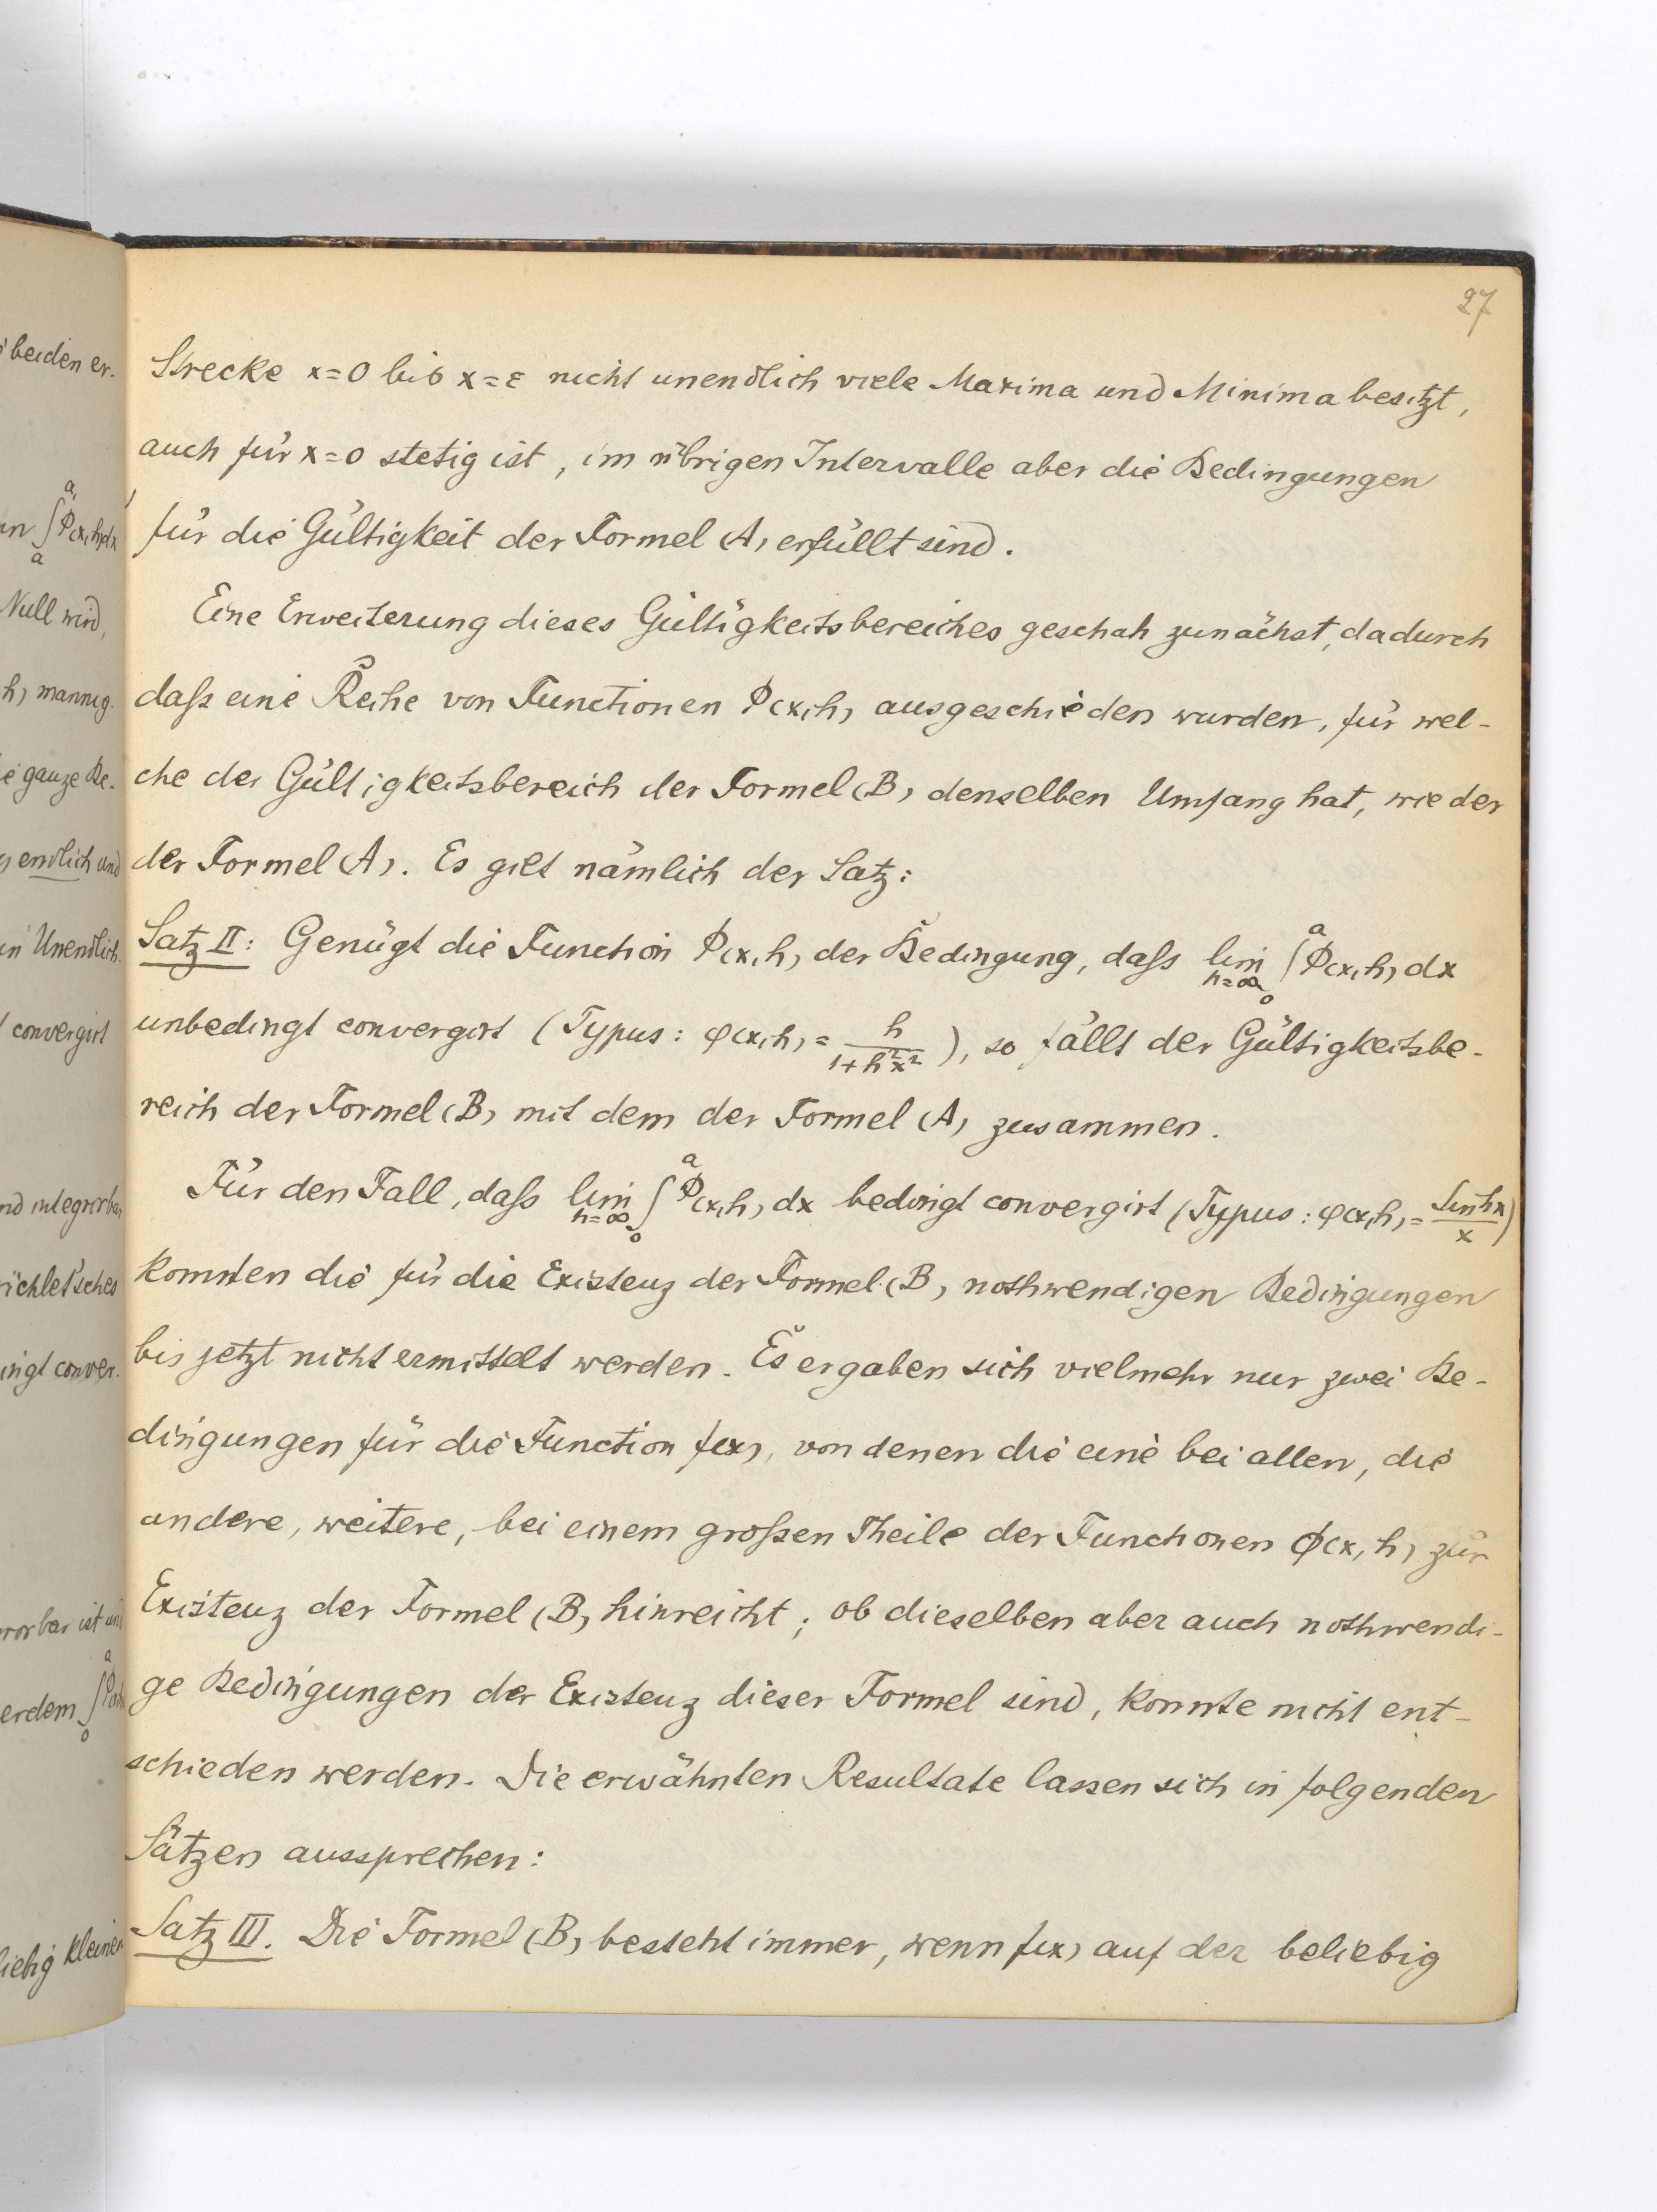 27
Strecke x=0 bis x=ε nicht unendlich viele Maxima und Minima besitzt,
auch für x=0 stetig ist, im übrigen Intervalle aber die Bedingungen
für die Gültigkeit der Formel (A) erfüllt sind.
Eine Erweiterung dieses Gültigkeitsbereiches geschah zunächst, dadurch
daß eine Reihe von Functionen Φ(x,h) ausgeschieden wurden, für wel-
che der Gültigkeitsbereich der Formel (B) denselben Umfang hat, wie der
der Formel (A). Es gilt nämlich der Satz:
Satz II: Genügt die Function Φ(x,h) der Bedingung, daß lim h=∞ ∫₀ᵃ Φ(x,h) dx
unbedingt convergirt (Typus: φ(x,h) = h/(1+h²x²)), so fällt der Gültigkeitsbe-
reich der Formel (B) mit dem der Formel (A) zusammen.
Für den Fall, daß lim h=∞ ∫₀ᵃ Φ(x,h) dx bedingt convergirt (Typus: φ(x,h) = Sin hx/x)
konnten die für die Existenz der Formel (B) nothwendigen Bedingungen
bis jetzt nicht ermittelt werden. Es ergaben sich vielmehr nur zwei Be-
dingungen für die Function f(x), von denen die eine bei allen, die
andere, weitere, bei einem großen Theile der Functionen Φ(x,h) zur
Existenz der Formel (B) hinreicht; ob dieselben aber auch nothwendi-
ge Bedingungen der Existenz dieser Formel sind, konnte nicht ent-
schieden werden. Die erwähnten Resultate lassen sich in folgenden
Sätzen aussprechen:
Satz III. Die Formel (B) besteht immer, wenn f(x) auf der beliebig
beiden er-
∫ Φ(x,h)dx
Null wird,
h) mannig-
ganze Be-
endlich und
Unendlich
convergirt
integrirbar
conver-
ist und
Kleinen